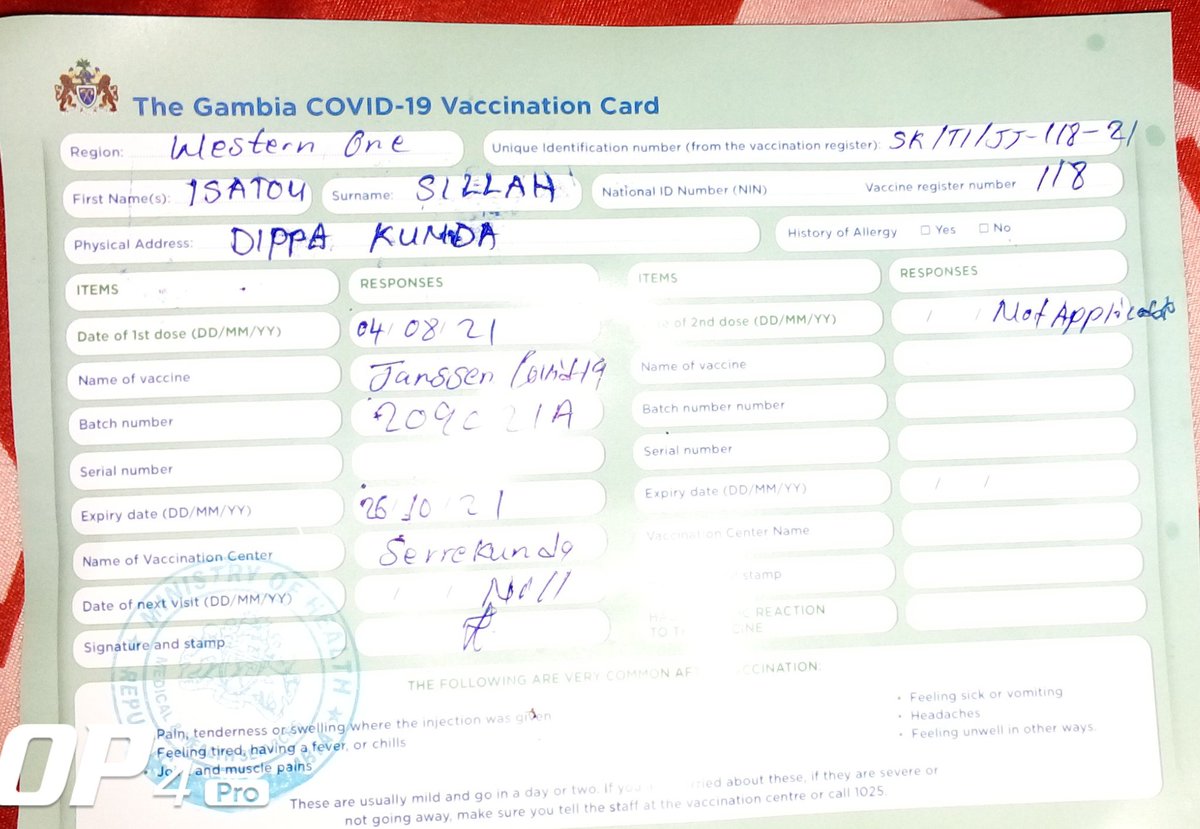 The Gambia COVID-19 Vaccination Card
Region: Western One
Unique Identification number (from the vaccination register): SK/TI/JJ-118-21
First Name(s): ISATOU
Surname: SILLAH
National ID Number (NIN)
Vaccine register number 118
Physical Address: DIPPA KUNDA
History of Allergy ☐ Yes ☐ No
ITEMS RESPONSES ITEMS RESPONSES
Date of 1st dose (DD/MM/YY) 04/08/21
of 2nd dose (DD/MM/YY) / / Not
Name of vaccine Janssen Covid19
Name of vaccine
Batch number 209C21A
Batch number number
Serial number
Serial number
Expiry date (DD/MM/YY) 26 10 21
Expiry date (DD/MM/YY) / /
Name of Vaccination Center Serrekunda
Vaccination Center Name
Date of next visit (DD/MM/YY) / / Nill
stamp
Signature and stamp
REACTION
TO
MINISTRY OF HEALTH
THE FOLLOWING ARE VERY COMMON VACCINATION:
Pain, tenderness or swelling where the injection was given
Feeling tired, having a fever, or chills
• and muscle pains
• Feeling sick or vomiting
• Headaches
• Feeling unwell in other ways.
These are usually mild and go in a day or two. If about these, if they are severe or
not going away, make sure you tell the staff at the vaccination centre or call 1025.
OP 4 Pro